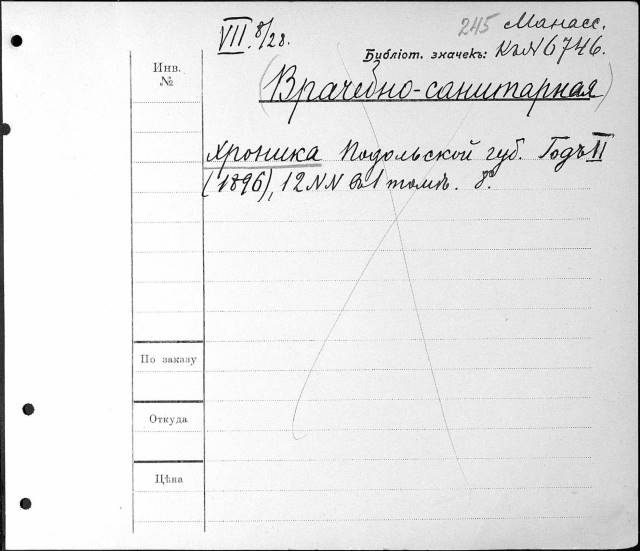 VII. 8/28.
245 Манасс.
Библіот. значекъ: Къ N 6746.
Инв. №
(Врачебно-санитарная)
Хроника Подольской губ. Годъ II
(1896), 12 NN въ 1 томѣ. 8°.
По заказу
Откуда
Цѣна